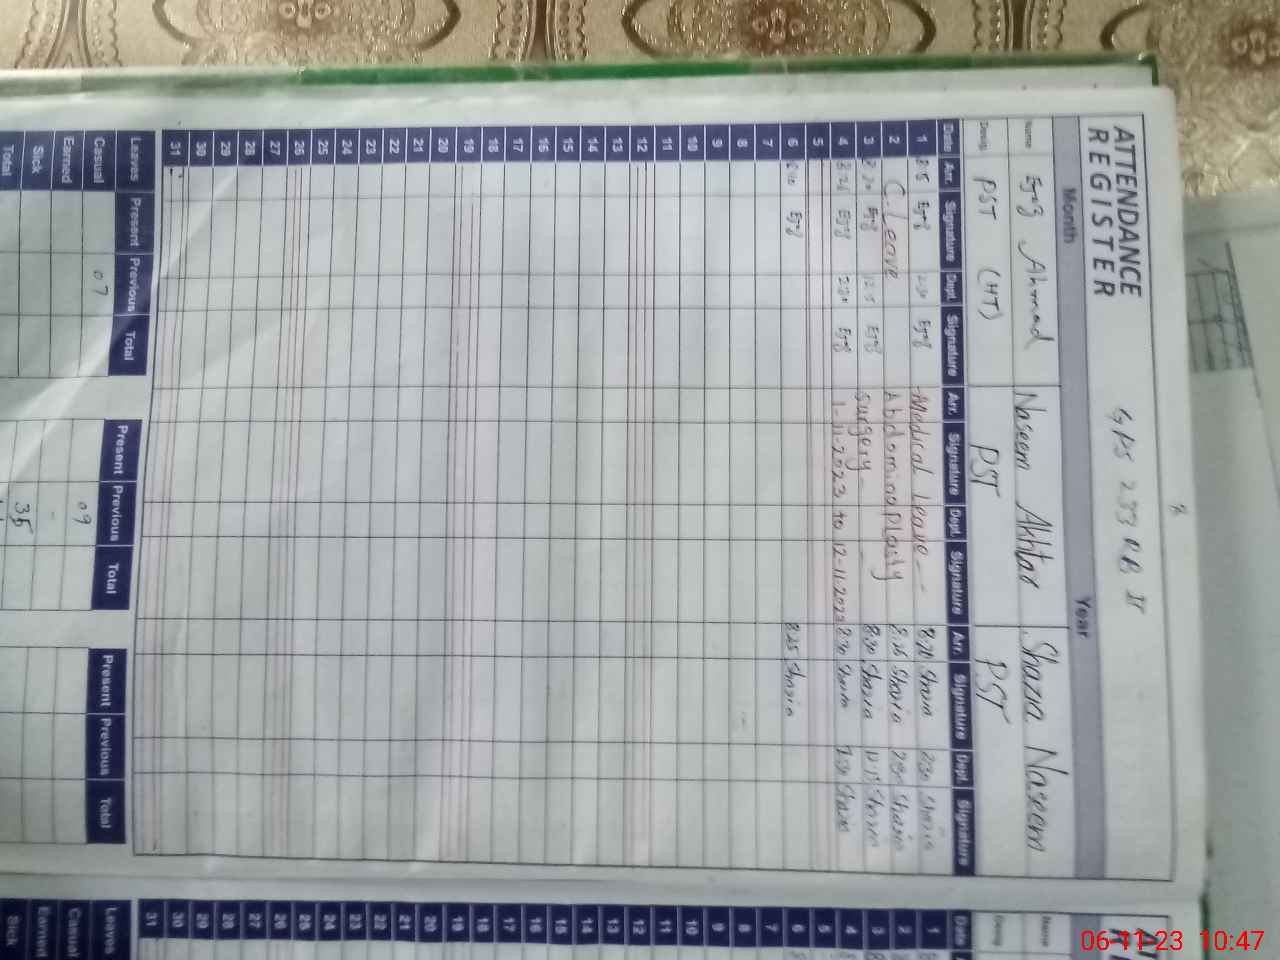 8
ATTENDANCE
REGISTER
GPS 233 RB II
Month Year
Name Ejaz Ahmad Naseem Akhtar Shazia Naseem
Desig. PST (HT) PST PST
Date Arr. Signature Dept. Signature Arr. Signature Dept. Signature Arr. Signature Dept. Signature
1 8:15 Ejaz 2:30 Ejaz Medical Leave - - 8:20 Shazia 2:30 Shazia
2 C. Leave Abdominoplasty 8:25 Shazia 2:30 Shazia
3 8:20 Ejaz 12:15 Ejaz surgery - 8:30 Shazia 12:15 Shazia
4 Ejaz 2:30 Ejaz 1-11-2023 to 12-11-2023 8:30 Shazia 2:30 Shazia
5
6 Ejaz 8:25 Shazia
7
8
9
10
11
12
13
14
15
16
17
18
19
20
21
22
23
24
25
26
27
28
29
30
31
Leaves Present Previous Total Present Previous Total Present Previous Total
Casual 07 09
Earned -
Sick 35
Total
AT
Name
Desig.
Date
1
2
3
4
5
6
7
8
9
10
11
12
13
14
15
16
17
18
19
20
21
22
23
24
25
26
27
28
29
30
31
Leaves
Casual
Earned
Sick
06-11-23 10:47